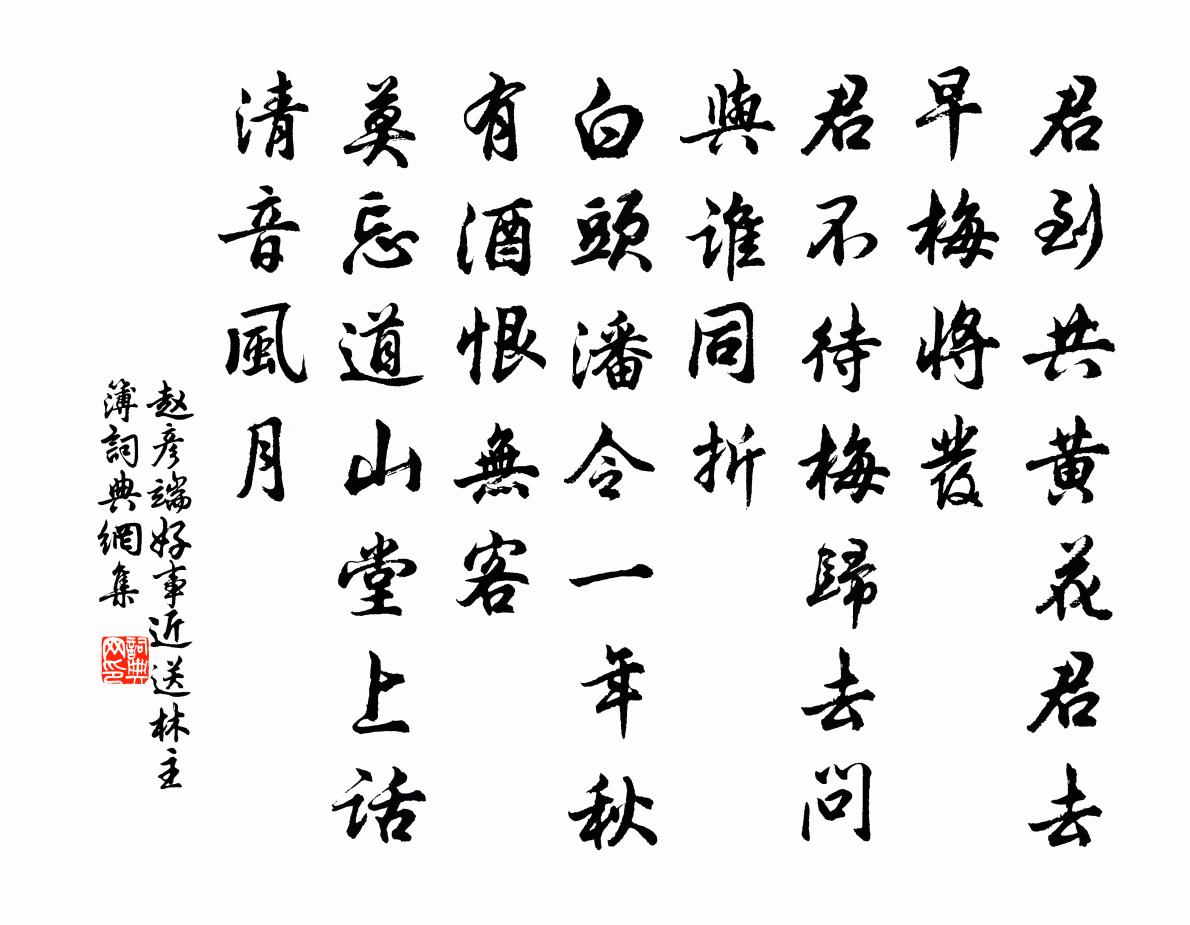 君到共黄花君去
早梅將發
君不待梅歸去問
與誰同折
白頭潘令一年秋
有酒恨無客
莫忘道山堂上話
清音風月
赵彦端好事近送林主
簿詞典網集
詞典
网印